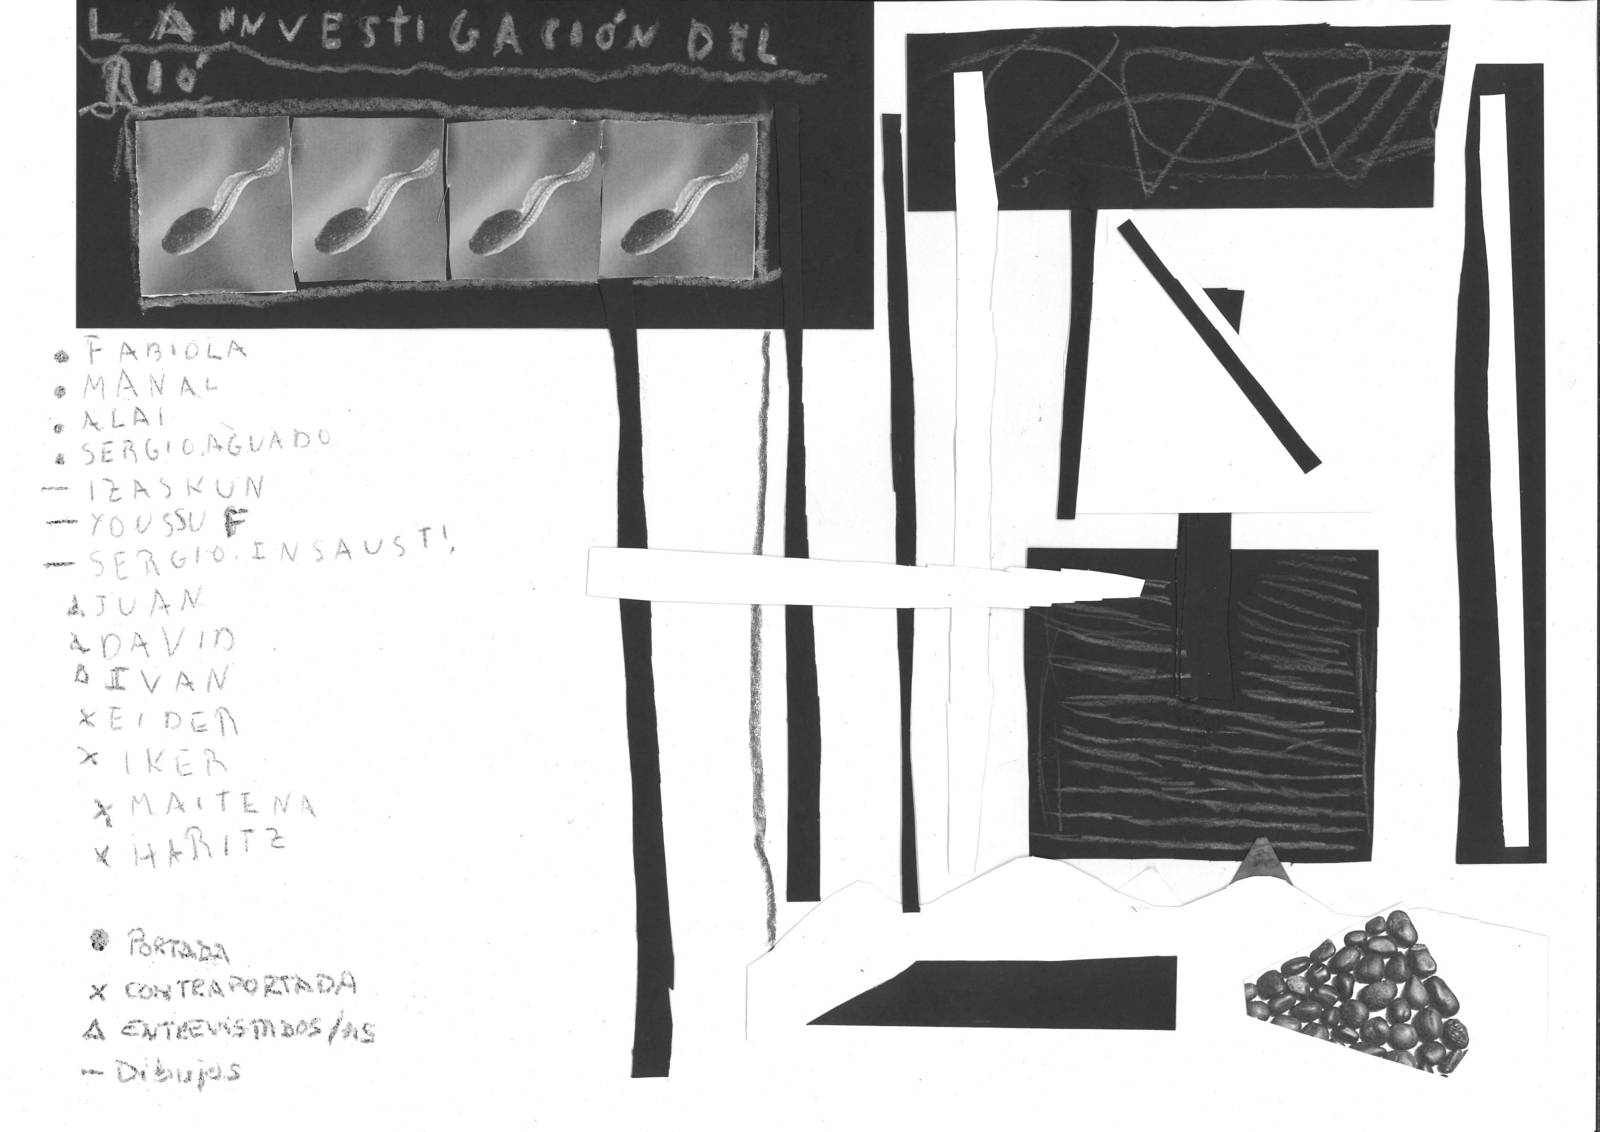 LA INVESTIGACIÓN DEL
RIÓ
● FABIOLA
● MANAL
● ALAI
● SERGIO.AGUADO
— IZASKUN
— YOUSSUF
— SERGIO.INSAUSTI
△ JUAN
△ DAVID
△ IVAN
X EIDER
X IKER
X MAITENA
X HARITZ
● PORTADA
X CONTRAPORTADA
△ ENTREVISTADOS/AS
— Dibujos